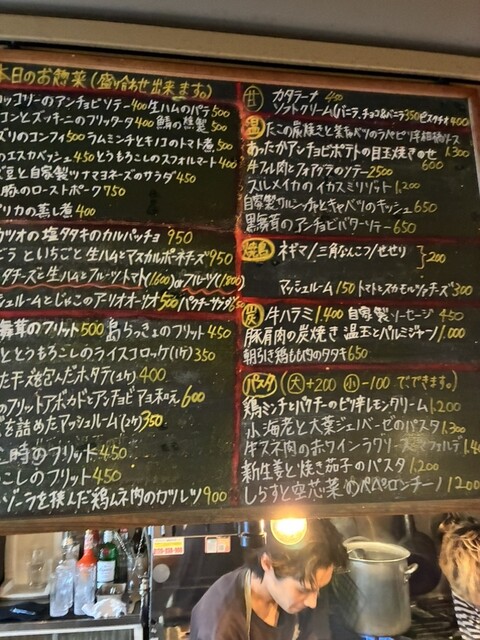 本日のお惣菜(盛り合わせ出来ます。)
ッコリーのアンチョビソテー400 生ハムのバラ500
コンとズッキーニのフリッタータ400 鯖の燻製500
ズリのコンフィ500 ラムミンチとキノコのトマト煮500
のエスカベッシュ450 とうもろこしのスフォルマート400
豆と自家製ツナマヨネーズのサラダ450
豚のローストポーク750
プリカの蒸し煮400
カツオの塩タタキのカルパッチョ950
といちごと生ハムとマスカルポーネチーズ950
タチーズと生ハムとフルーツトマト(1,600)orフルーツ(1,800)
シュルームとじゃこのアリオオーリオ500 パクチーサラダ
舞茸のフリット500 島らっきょのフリット450
ととうもろこしのライスコロッケ(1ケ)350
干ス包んだホタテ(1ケ)400
のフリットアボカドとアンチョビマヨネーズ600
を詰めたマッシュルーム(2ケ)350
時のフリット450
こしのフリット450
ゾーラを挟んだ鶏ムネ肉のカツレツ900
甘 カタラーナ400
ソフトクリーム(バニラ、チョコ&バニラ350 ピスタチオ400
温 たこの炭焼きと
あったかアンチョビポテトの目玉焼きのせ600
1,300
牛フィレ肉とフォアグラのソテー2500
スルメイカのイカスミリゾット1,200
自家製サルシッチャとキャベツのキッシュ650
黒舞茸のアンチョビバターソテー650
焼鳥 ネギマ/三角なんこつ/せせり 200
マッシュルーム150 トマトとスカモルツァチーズ300
炭 牛ハラミ1,400 自家製ソーセージ450
豚肩肉の炭焼き 温玉とパルミジャーノ1,000
朝引き鶏ももものタタキ650
パスタ(大+200 小-100 でできます。)
鶏ミンチとパクチーのピリ辛レモンクリーム1,200
小海老と大葉ジェノベーゼのパスタ1,300
牛スネ肉の赤ワインラグソース フェデ1,4
新生姜と焼き茄子のパスタ1,200
しらすと空芯菜のペペロンチーノ1200